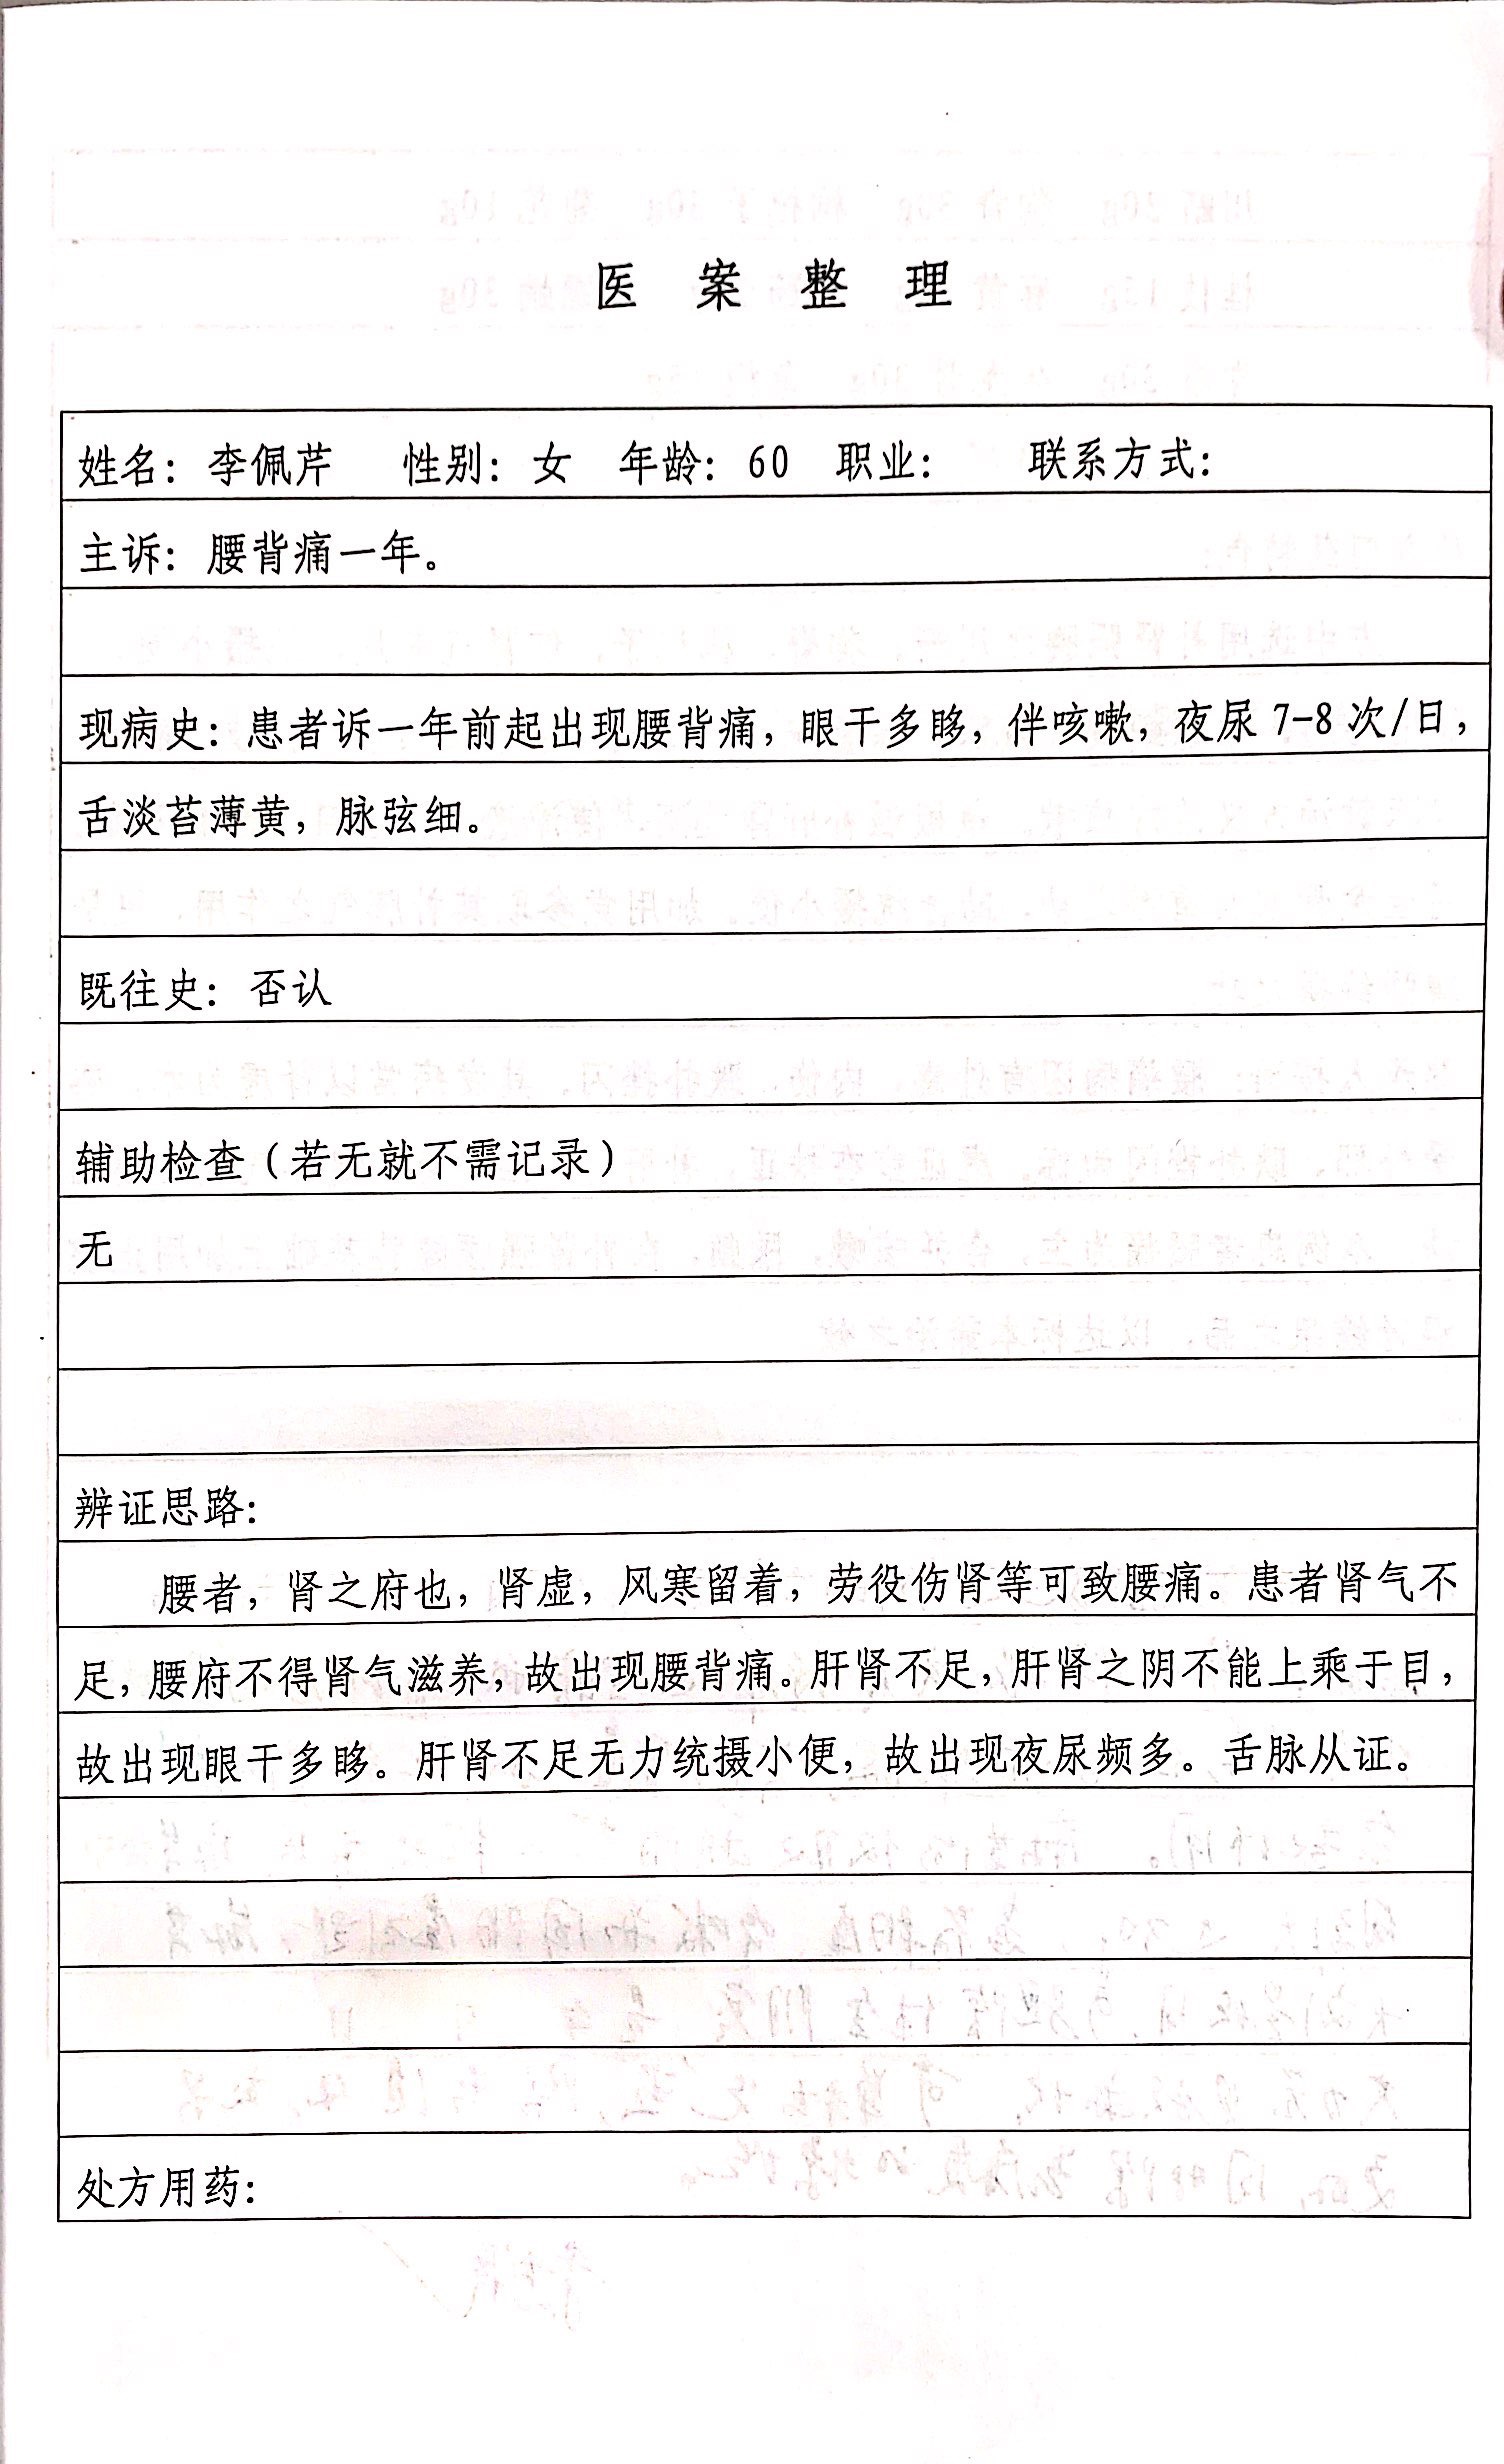 医 案 整 理
姓名：李佩芹 性别：女 年龄：60 职业： 联系方式：
主诉：腰背痛一年。
现病史：患者诉一年前起出现腰背痛，眼干多眵，伴咳嗽，夜尿 7-8 次/日，
舌淡苔薄黄，脉弦细。
既往史：否认
辅助检查（若无就不需记录）
无
辨证思路：
腰者，肾之府也，肾虚，风寒留着，劳役伤肾等可致腰痛。患者肾气不
足，腰府不得肾气滋养，故出现腰背痛。肝肾不足，肝肾之阴不能上乘于目，
故出现眼干多眵。肝肾不足无力统摄小便，故出现夜尿频多。舌脉从证。
处方用药：